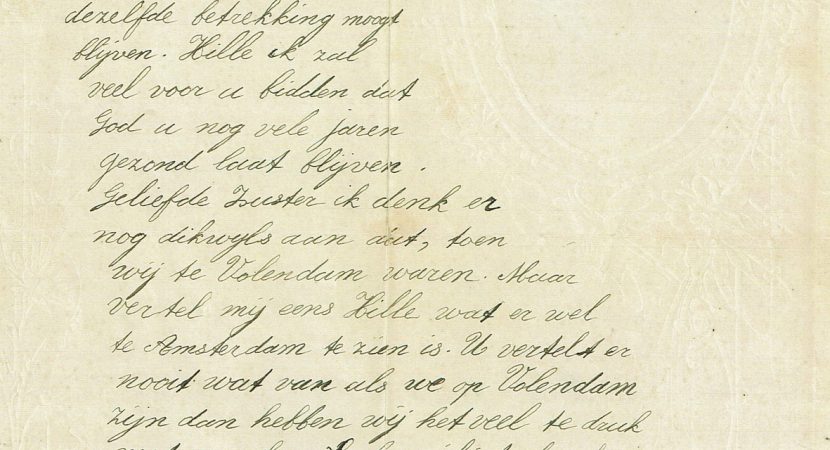 dezelfde betrekking moogt
blijven. Hille ik zal
veel voor u bidden dat
God u nog vele jaren
gezond laat blijven.
Geliefde Zuster ik denk er
nog dikwyls aan dat, toen
wij te Volendam waren. Maar
vertel mij eens Hille wat er wel
te Amsterdam te zien is. U vertelt er
nooit wat van als we op Volendam
zijn dan hebben wij het veel te druk